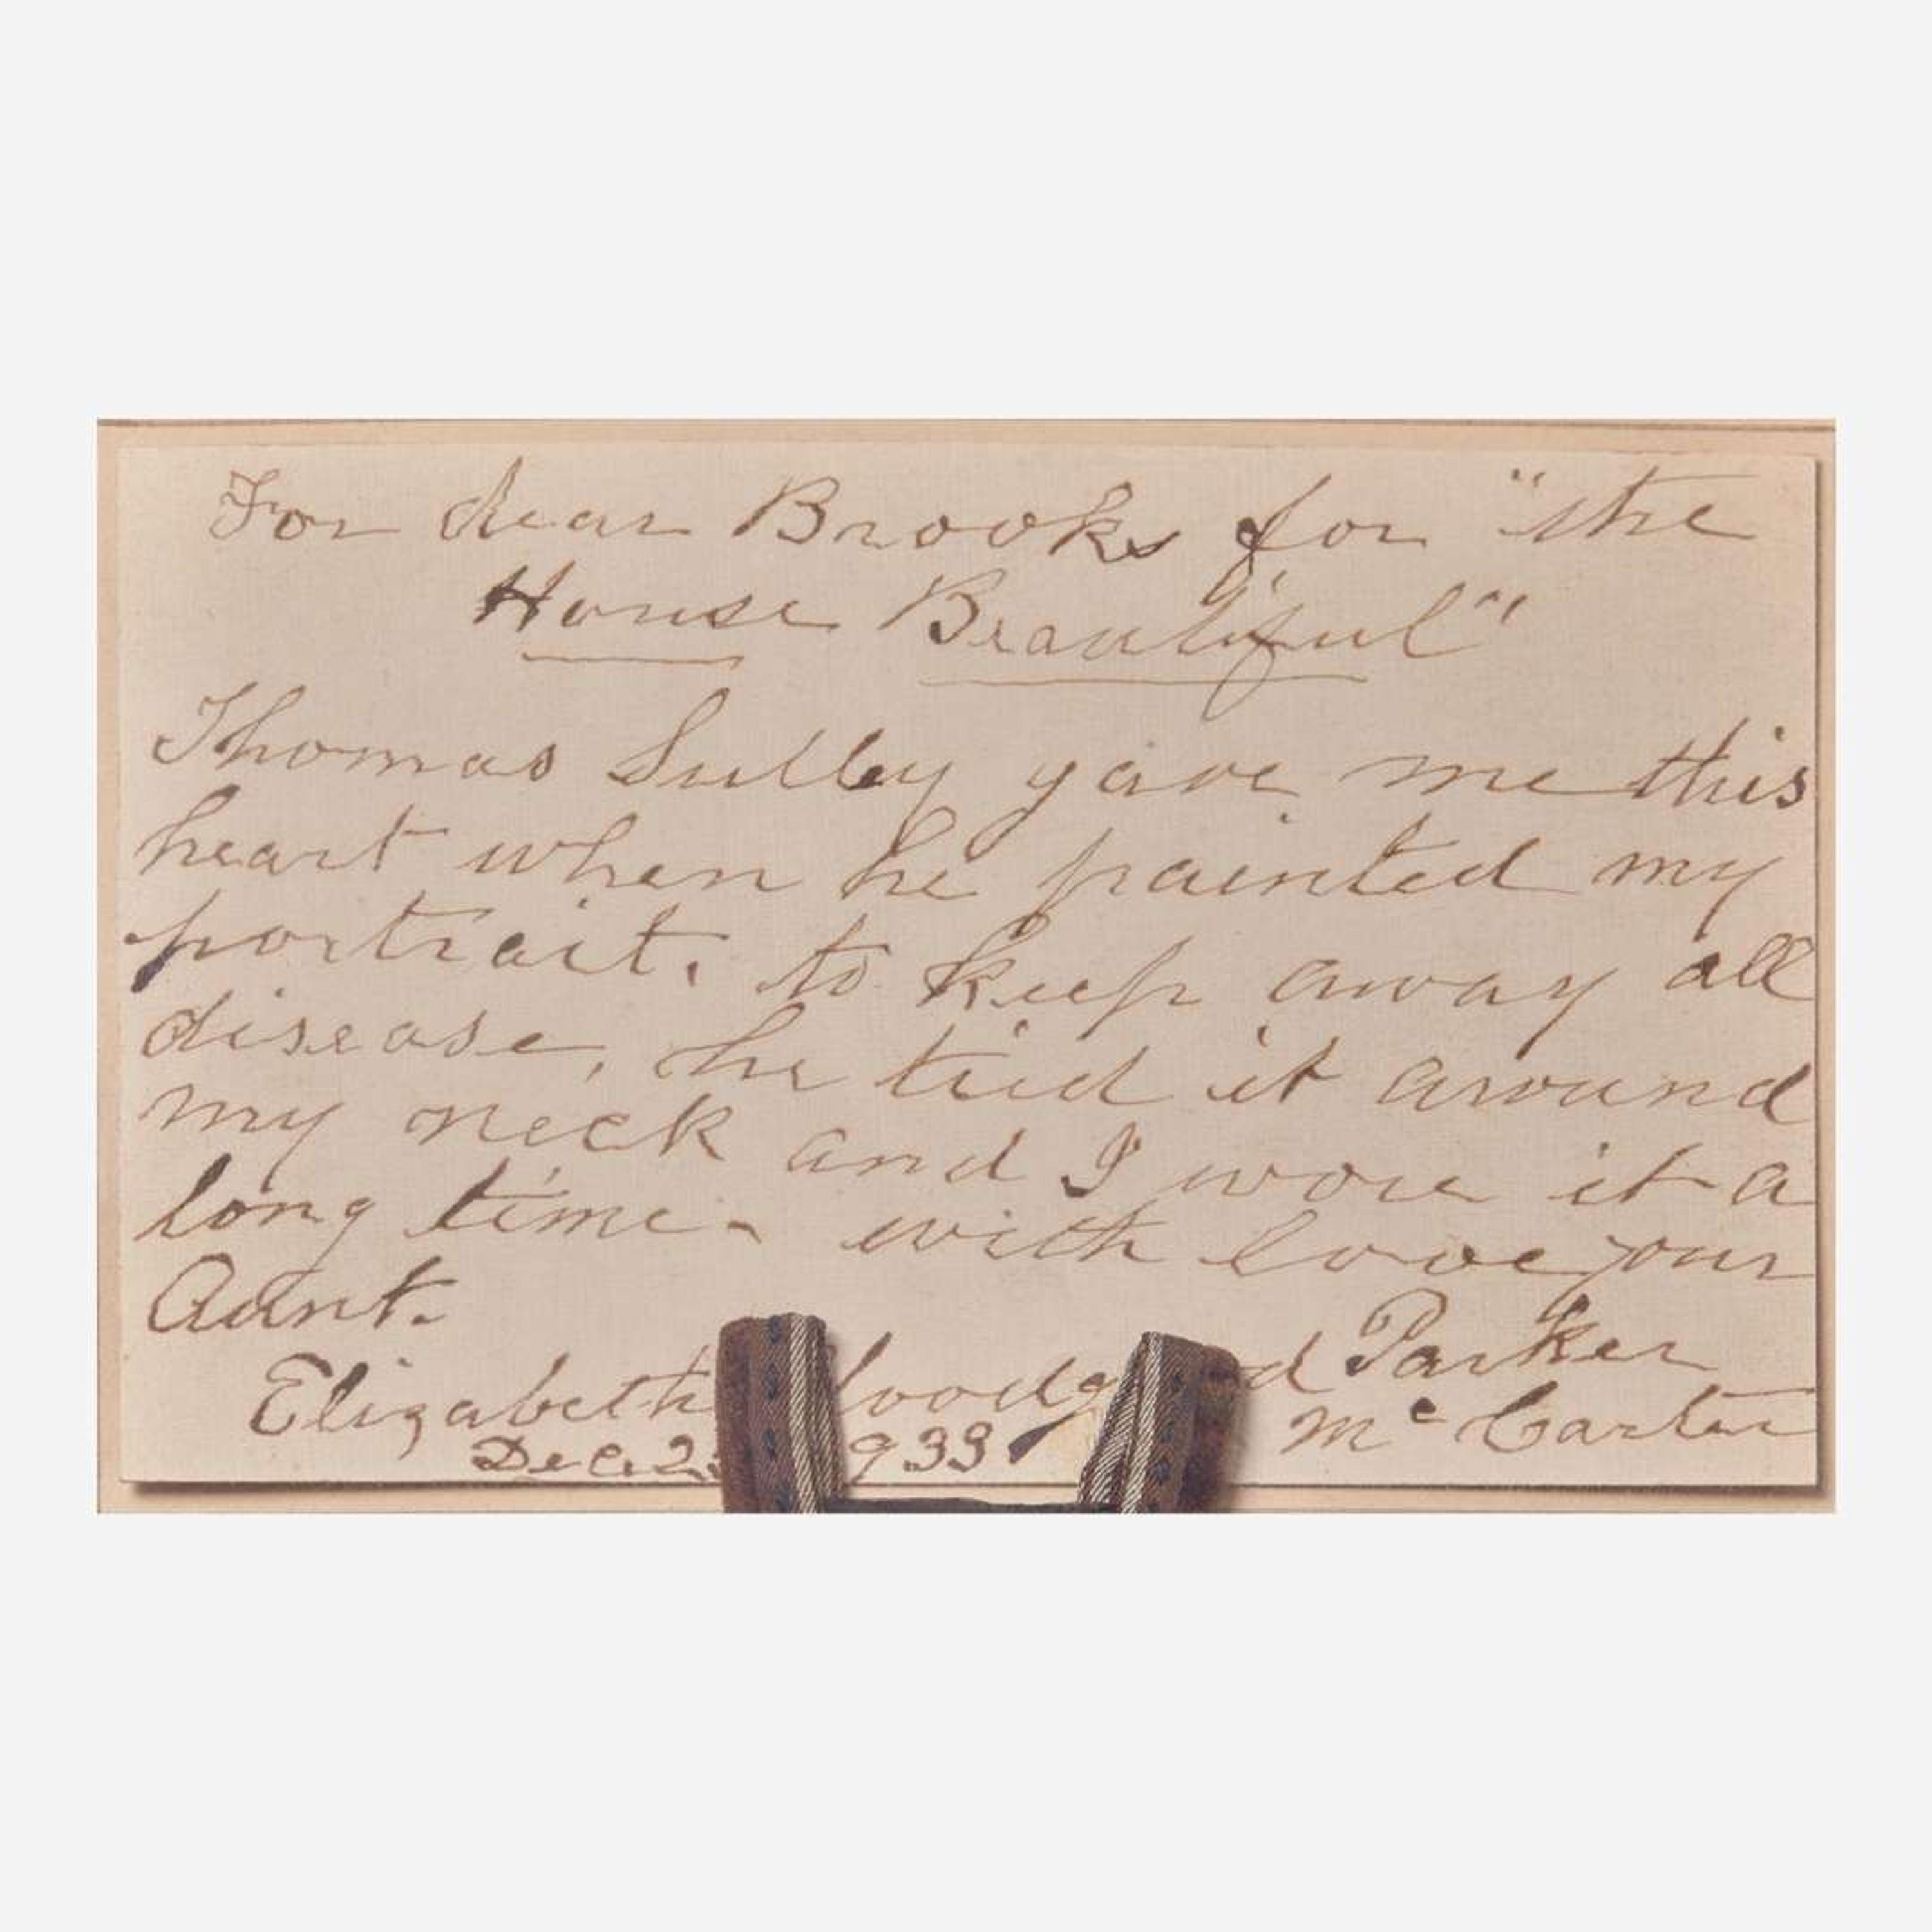 For dear Brooks for "the
House Beautiful"
Thomas Sully gave me this
heart when he painted my
portrait. to keep away all
disease, he tied it around
my neck and I wore it a
long time - with love your
Aunt.
Elizabeth Parker
Mc Carter
Dec. 933